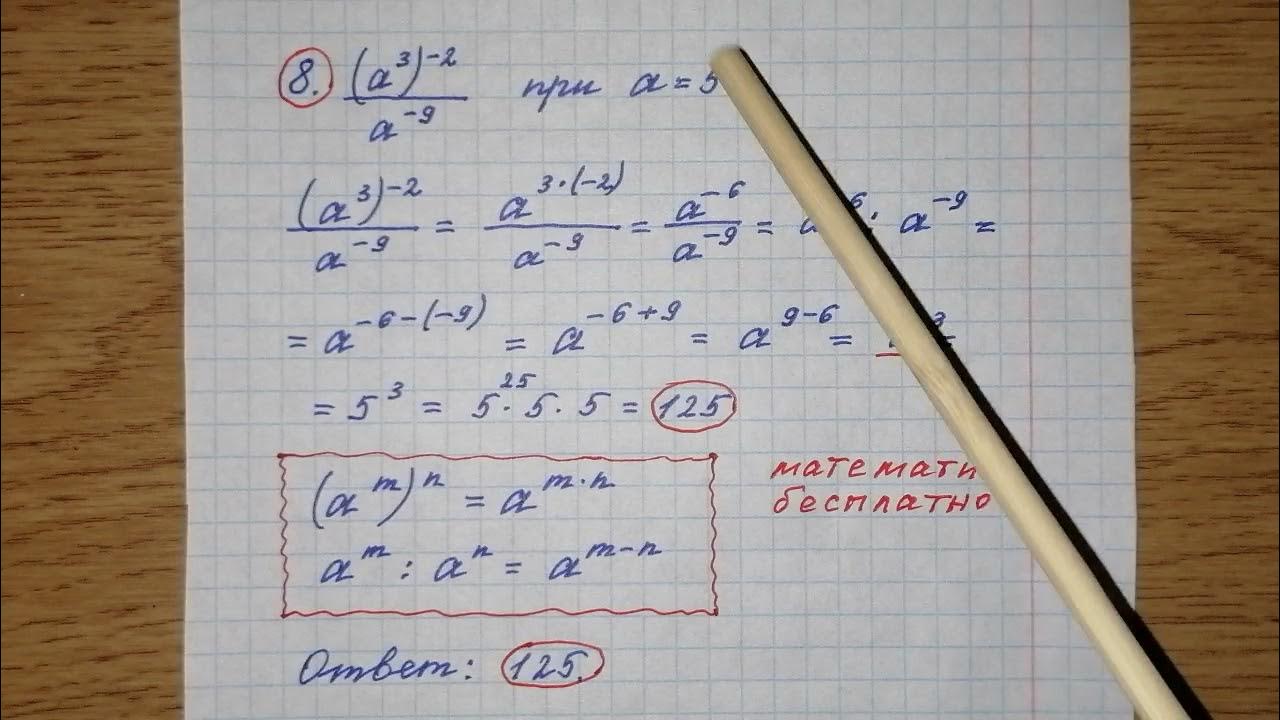 8. (a³)⁻² / a⁻⁹ при a = 5
(a³)⁻² / a⁻⁹ = a³·⁽⁻²⁾ / a⁻⁹ = a⁻⁶ / a⁻⁹ = : a⁻⁹ =
= a⁻⁶⁻⁽⁻⁹⁾ = a⁻⁶⁺⁹ = a⁹⁻⁶ =
= 5³ = 5 · 5 · 5 = 125
25
(aᵐ)ⁿ = aᵐ·ⁿ
aᵐ : aⁿ = aᵐ⁻ⁿ
математи
бесплатно
Ответ: 125.